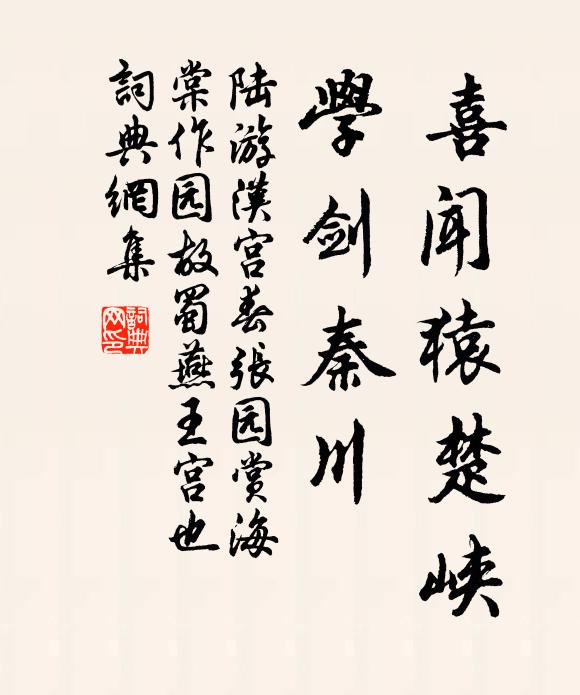 喜闻猿楚峡
學剑秦川
陆游漢宫春張园赏海
棠作园故蜀燕王宫也
詞典網集
詞典网印